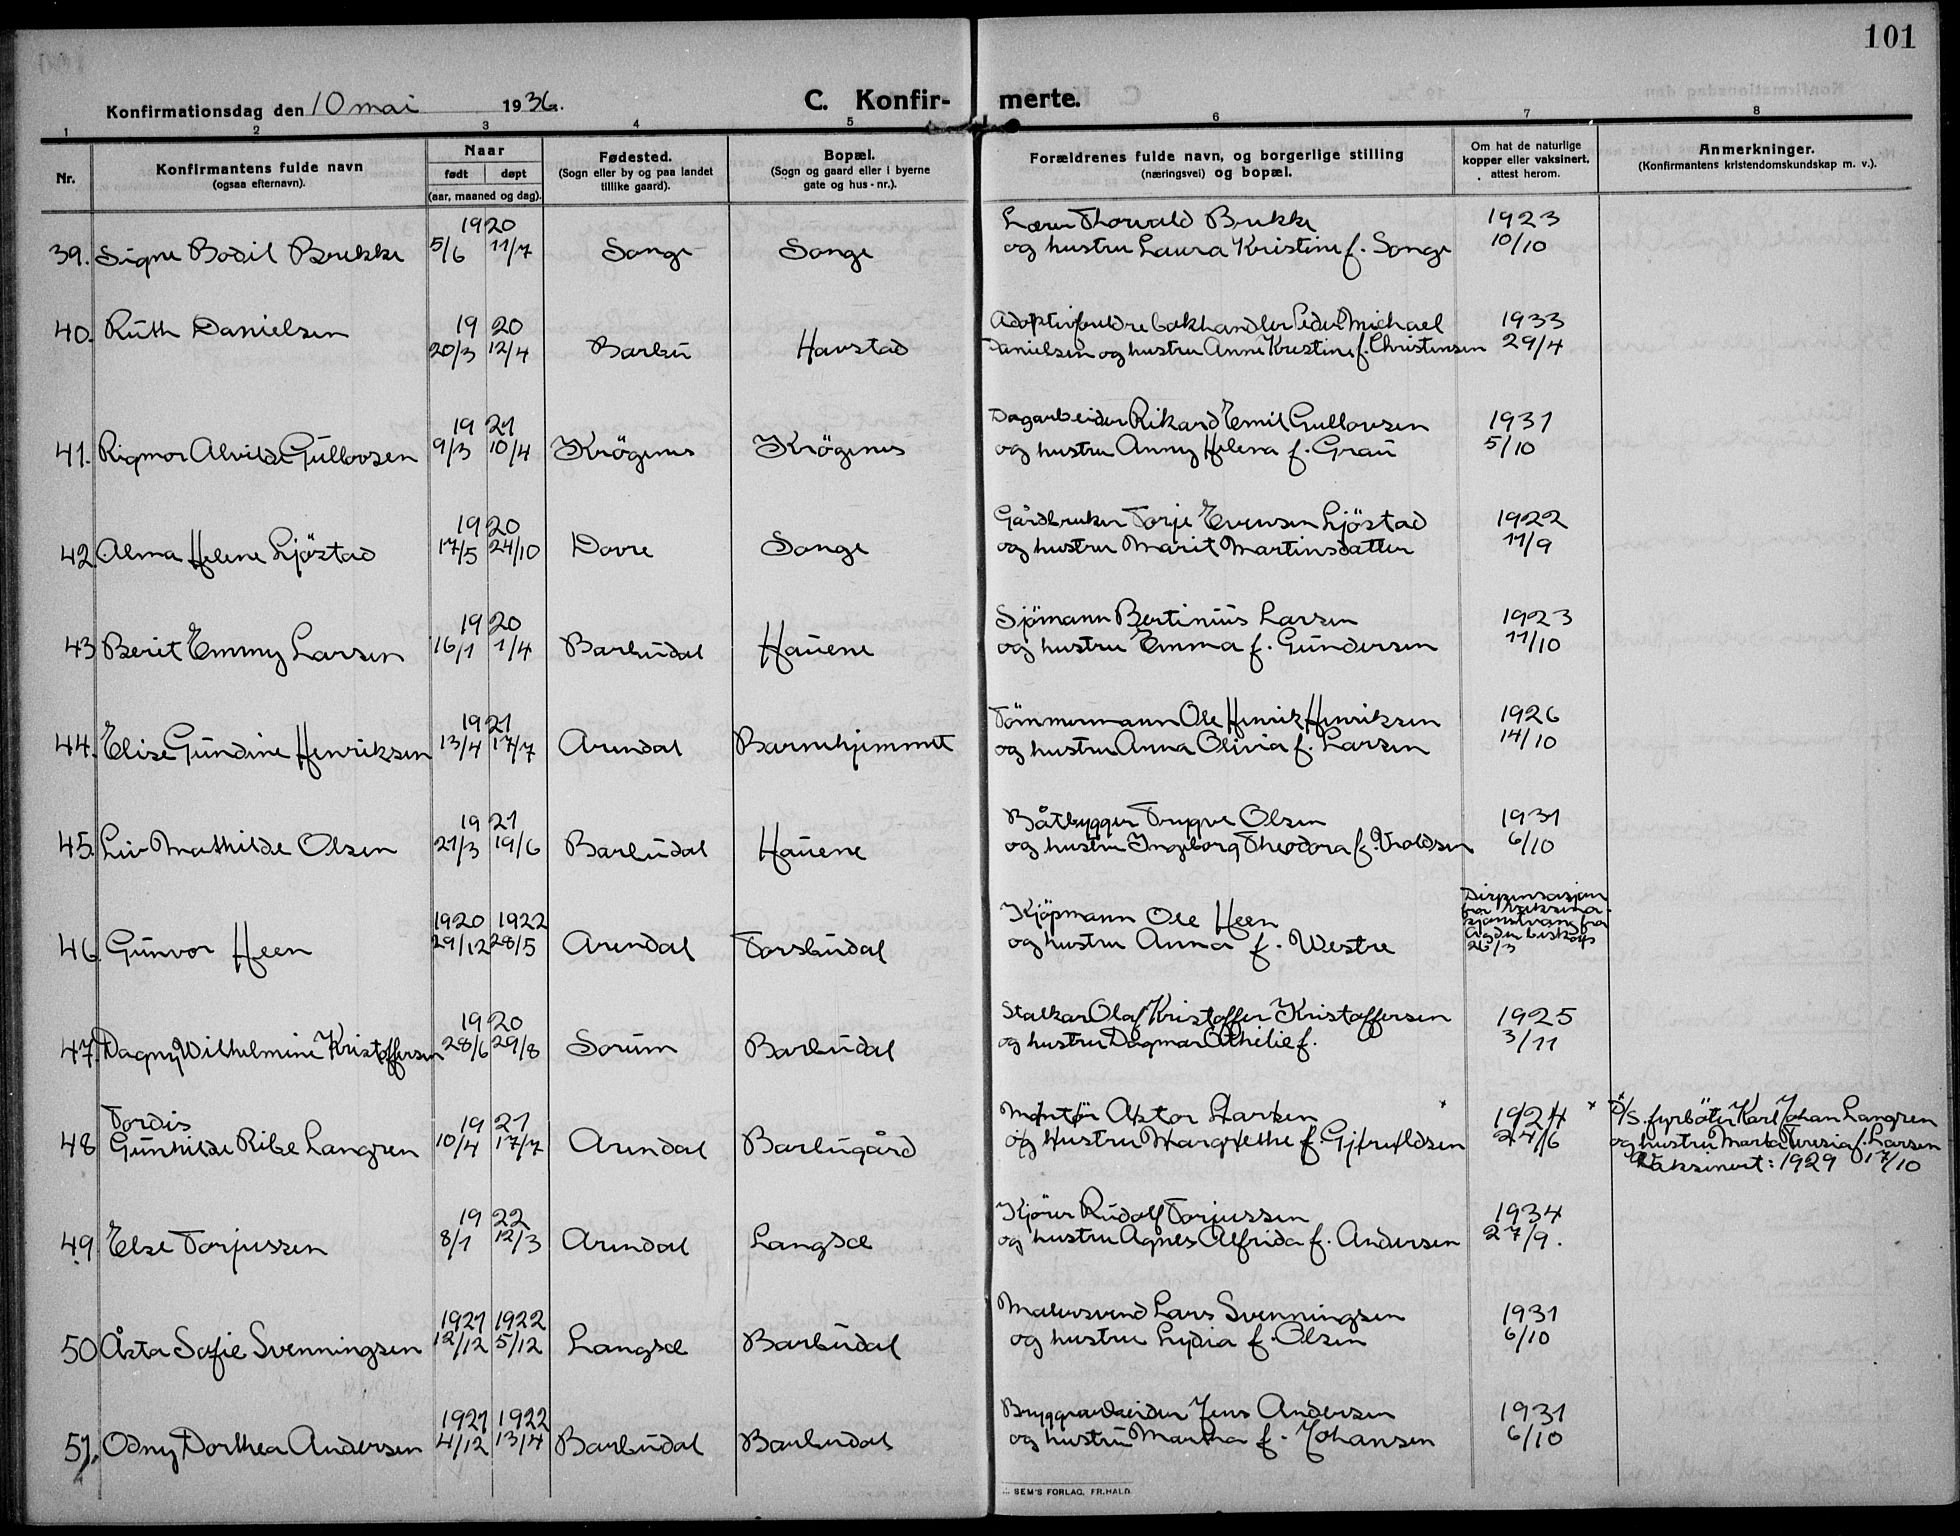 101
Konfirmationsdag den 10 mai 1936. C. Konfir- merte.
1 2 3 4 5 6 7 8
Nr.
Konfirmantens fulde navn
(ogsaa efternavn).
Naar
født døpt
(aar, maaned og dag).
Fødested.
(Sogn eller by og paa landet
tillike gaard).
Bopæl.
(Sogn og gaard eller i byerne
gate og hus-nr.).
Forældrenes fulde navn, og borgerlige stilling
(næringsvei) og bopæl.
Om hat de naturlige
kopper eller vaksinert,
attest herom.
Anmerkninger.
(Konfirmantens kristendomskundskap m. v.).
1920 Lærer Thorvald Brekke 1923
39. Signe Bodil Brekke 5/6 11/7 Songe Songe og hustru Laura Kristine f. Songe 10/10
40. Ruth Danielsen 1920 Adoptivforeldre bokhandler Peder Michael 1933
20/3 12/4 Barbu Havstad Danielsen og hustru Anne Kristine f. Christensen 29/4
1921 Dagarbeider Rikard Emil Gullovsen 1931
41. Rigmor Alvilde Gullovsen 9/3 10/4 Krøgenes Krøgenes og hustru Anny Helena f. Grau 5/10
1920 Gårdbruker Torje Evensen Ljöstad 1922
42 Alma Helene Ljöstad 17/5 24/10 Dovre Songe og hustru Marit Martinsdatter 11/9
1920 Sjömann Bertinius Larsen 1923
43 Berit Emmy Larsen 16/1 1/4 Barbudal Hauene og hustru Emma f. Gundersen 11/10
1921 Tömmermann Ole Henrik Henriksen 1926
44. Elise Gundine Henriksen 13/4 17/7 Arendal Barnehjemmet og hustru Anna Olivia f. Larsen 14/10
1921 Båtbygger Trygve Olsen 1931
45. Liv Mathilde Olsen 21/3 19/6 Barbudal Hauene og hustru Ingeborg Theodora f. Uvoldsen 6/10
1920 1922 Kjöpmann Ole Heen Dispensasjon
46 Gunvor Heen 29/12 28/5 Arendal Torsbudal og hustru Anna f. Westre fra Agder biskop
26/3
1920 Olaf Kristoffer Kristoffersen 1925
47. Dagny Wilhelmine Kristoffersen 28/6 29/8 Sorum Barbudal og hustru Dagmar Othilie f. 3/11
Tordis 1921 Montör Aktor Starken × 1924 × D/S. fyrböter Karl Johan Langren
48 Gunhilde Ribe Langren 10/4 17/7 Arendal Barbugård og Hustru Margrethe f. Gjeruldsen 24/6 og hustru Marta Teresia f. Larsen
Vaksinert: 1929 17/10
1922 Kjörer Rudolf Torjussen 1934
49 Else Torjussen 8/1 12/3 Arendal Langsæ og hustru Agnes Alfrida f. Andersen 27/9.
1921 1922 Malersvend Lars Svenningsen 1931
50 Åsta Sofie Svenningsen 12/12 5/12 Langsæ Barbudal og hustru Lydia f. Olsen 6/10
1921 1922 Bryggearbeider Jens Andersen 1931
51. Odny Dorthea Andersen 4/12 13/4 Barbudal Barbudal og hustru Martha f. Johansen 6/10
SEM'S FORLAG, FR.HALD.